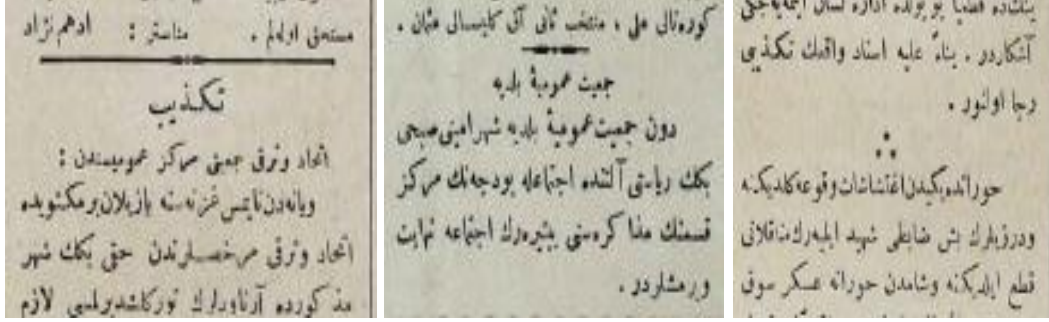 مستحق اوله‌لم . مناستر : ادهم نژاد
تكذیب
اتحاد وترقی جمعیتی مركز عمومیسندن :
ویانه‌دن تایمس غزته‌سنه یازیلان برمكتوبده
اتحاد وترقی مرخصلرندن حقی بكك شهر
مذكورده آرناودلرك توركلشدیرلمسی لازم
كورتالی علی ، منتخب ثانی آق كلیسالی عثمان .
جمعیت عمومیهٔ بلدیه
دون جمعیت عمومیهٔ بلدیه شهرامینی صبحی
بكك ریاستی آلتنده اجتماعله بودجه‌نك مركز
قسمنك مذاكره‌سنی بیتیره‌رك اجتماعه نهایت
ویرمشلردر .
ینكده قطعیا بو یولده اداره لسان ایمیه‌جكی
آشكاردر . بناءً علیه اسناد واقعك تكذیبی
رجا اولنور .
حورانده یكیدن اغتشاشات وقوعه كلدیكنه
ودرزیلرك بش ضابطی شهید ایلیه‌رك مناقلاتی
قطع ایلدیكنه وشامدن حورانه عسكر سوق